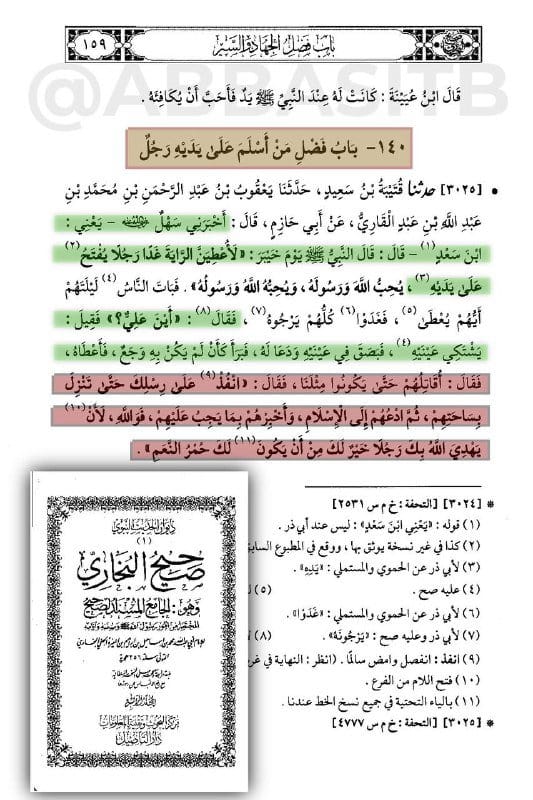 بَابُ فَضْلِ الْجِهَادِ وَالسِّيَرِ
١٥٩
@ARBASITB
قَالَ ابْنُ عُيَيْنَةَ : كَانَتْ لَهُ عِنْدَ النَّبِيِّ ﷺ يَدٌ فَأَحَبَّ أَنْ يُكَافِئَهُ .
١٤٠- بَابُ فَضْلِ مَنْ أَسْلَمَ عَلَىٰ يَدَيْهِ رَجُلٌ
• [٣٠٢٥] حدثنا قُتَيْبَةُ بْنُ سَعِيدٍ ، حَدَّثَنَا يَعْقُوبُ بْنُ عَبْدِ الرَّحْمَنِ بْنِ مُحَمَّدِ بْنِ
عَبْدِ اللَّهِ بْنِ عَبْدٍ الْقَارِيُّ ، عَنْ أَبِي حَازِمٍ ، قَالَ : أَخْبَرَنِي سَهْلٌ - يَعْنِي :
ابْنَ سَعْدٍ(١) - قَالَ : قَالَ النَّبِيُّ ﷺ يَوْمَ خَيْبَرَ : «لَأُعْطِيَنَّ الرَّايَةَ غَدًا رَجُلًا يُفْتَحُ(٢)
عَلَىٰ يَدَيْهِ(٣) ، يُحِبُّ اللَّهَ وَرَسُولَهُ ، وَيُحِبُّهُ اللَّهُ وَرَسُولُهُ» . فَبَاتَ النَّاسُ(٤) لَيْلَتَهُمْ
أَيُّهُمْ يُعْطَىٰ(٥) ، فَغَدَوْا(٦) كُلُّهُمْ يَرْجُوهُ(٧) ، فَقَالَ(٨) : «أَيْنَ عَلِيٌّ؟» فَقِيلَ :
يَشْتَكِي عَيْنَيْهِ(٤) ، فَبَصَقَ فِي عَيْنَيْهِ وَدَعَا لَهُ ، فَبَرَأَ كَأَنْ لَمْ يَكُنْ بِهِ وَجَعٌ ، فَأَعْطَاهُ ،
فَقَالَ : أُقَاتِلُهُمْ حَتَّىٰ يَكُونُوا مِثْلَنَا ، فَقَالَ : «انْفُذْ(٩) عَلَىٰ رِسْلِكَ حَتَّىٰ تَنْزِلَ
بِسَاحَتِهِمْ ، ثُمَّ ادْعُهُمْ إِلَى الْإِسْلَامِ ، وَأَخْبِرْهُمْ بِمَا يَجِبُ عَلَيْهِمْ ، فَوَاللَّهِ ، لَأَنْ(١٠)
يَهْدِيَ اللَّهُ بِكَ رَجُلًا خَيْرٌ لَكَ مِنْ أَنْ يَكُونَ(١١) لَكَ حُمْرُ النَّعَمِ» .
* [٣٠٢٤] [التحفة : خ م س ٢٥٣١]
(١) قوله : «يَعْنِي ابْنَ سَعْدٍ» : ليس عند أبي ذر .
(٢) كذا في غير نسخة يوثق بها ، ووقع في المطبوع السابق
(٣) لأبي ذر عن الحموي والمستملي : «يَدِهِ» .
(٤) عليه صح .
(٥) ل
(٦) لأبي ذر عن الحموي والمستملي : «غَدَوْا» .
(٧) لأبي ذر وعليه صح : «يَرْجُونَهُ» .
(٨) ل
(٩) انفذ : انفصل وامض سالمًا . (انظر : النهاية في غر
(١٠) فتح اللام من الفرع .
(١١) بالياء التحتية في جميع نسخ الخط عندنا .
* [٣٠٢٥] [التحفة : خ م س ٤٧٧٧]
ديوان الحديث النبوي
(١)
صحيح البخاري
وَهُوَ : الجَامِعُ المُسْنَدُ الصَّحِيحُ
مركز البحوث وتقنية المعلومات
دار التأصيل